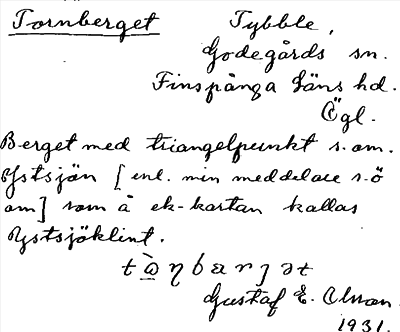 Tornberget Tybble,
Godegårds sn.
Finspånga läns hd.
Ögl.
Berget med triangelpunkt s.om.
Ystsjön [enl. min meddelare s.ö
om] som å ek-kartan kallas
Ystsjöklint.
Gustaf E. Olsson
1931.